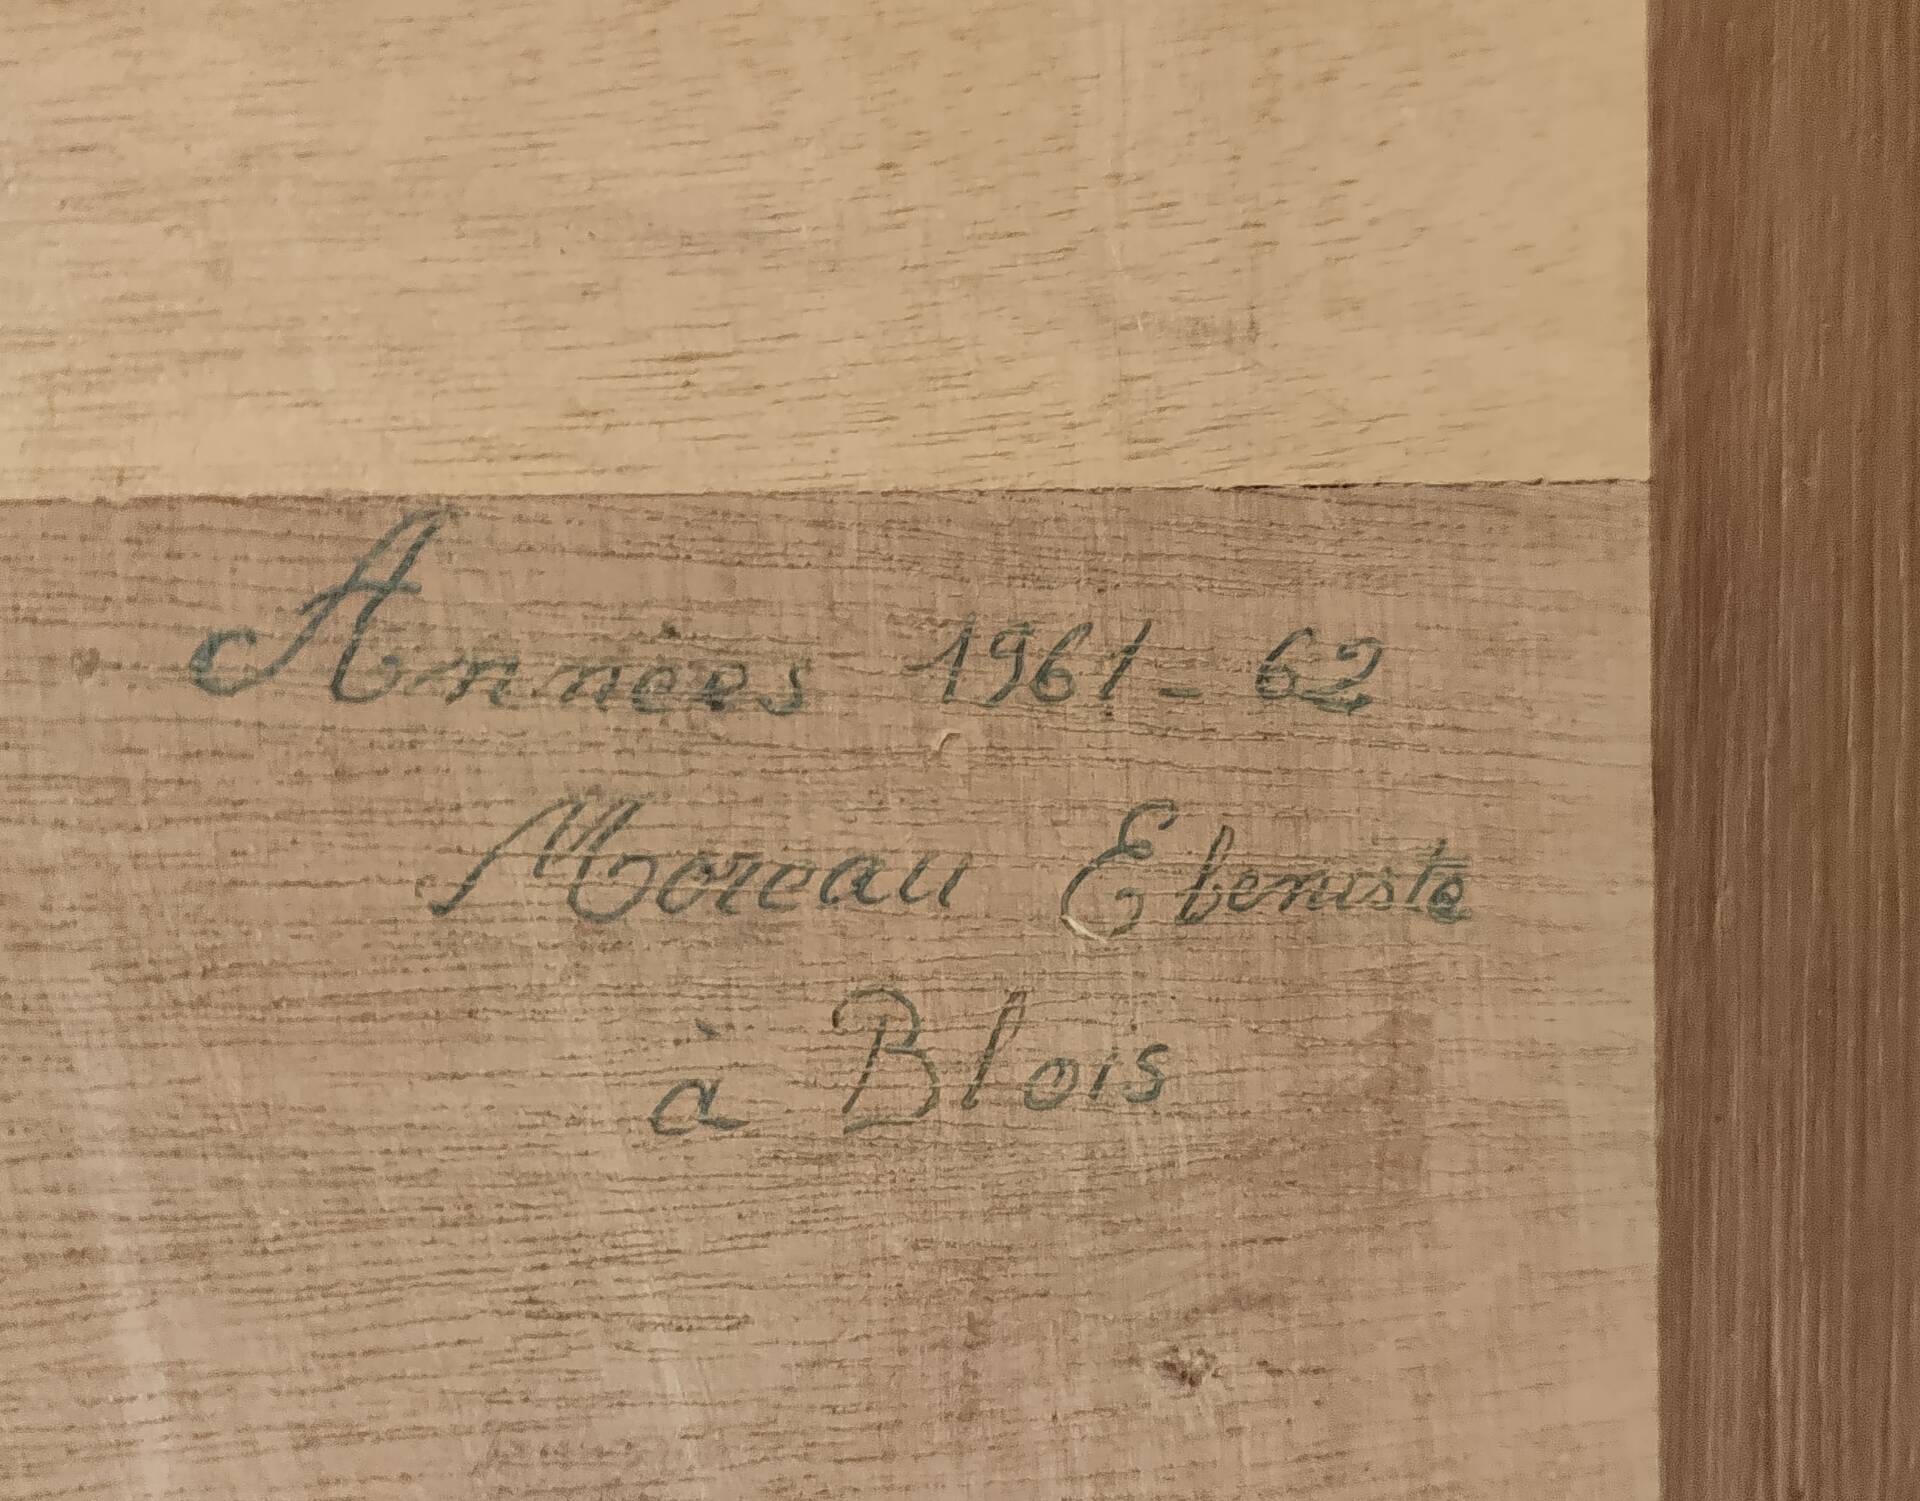 Années 1961-62
Moreau Ebeniste
à Blois